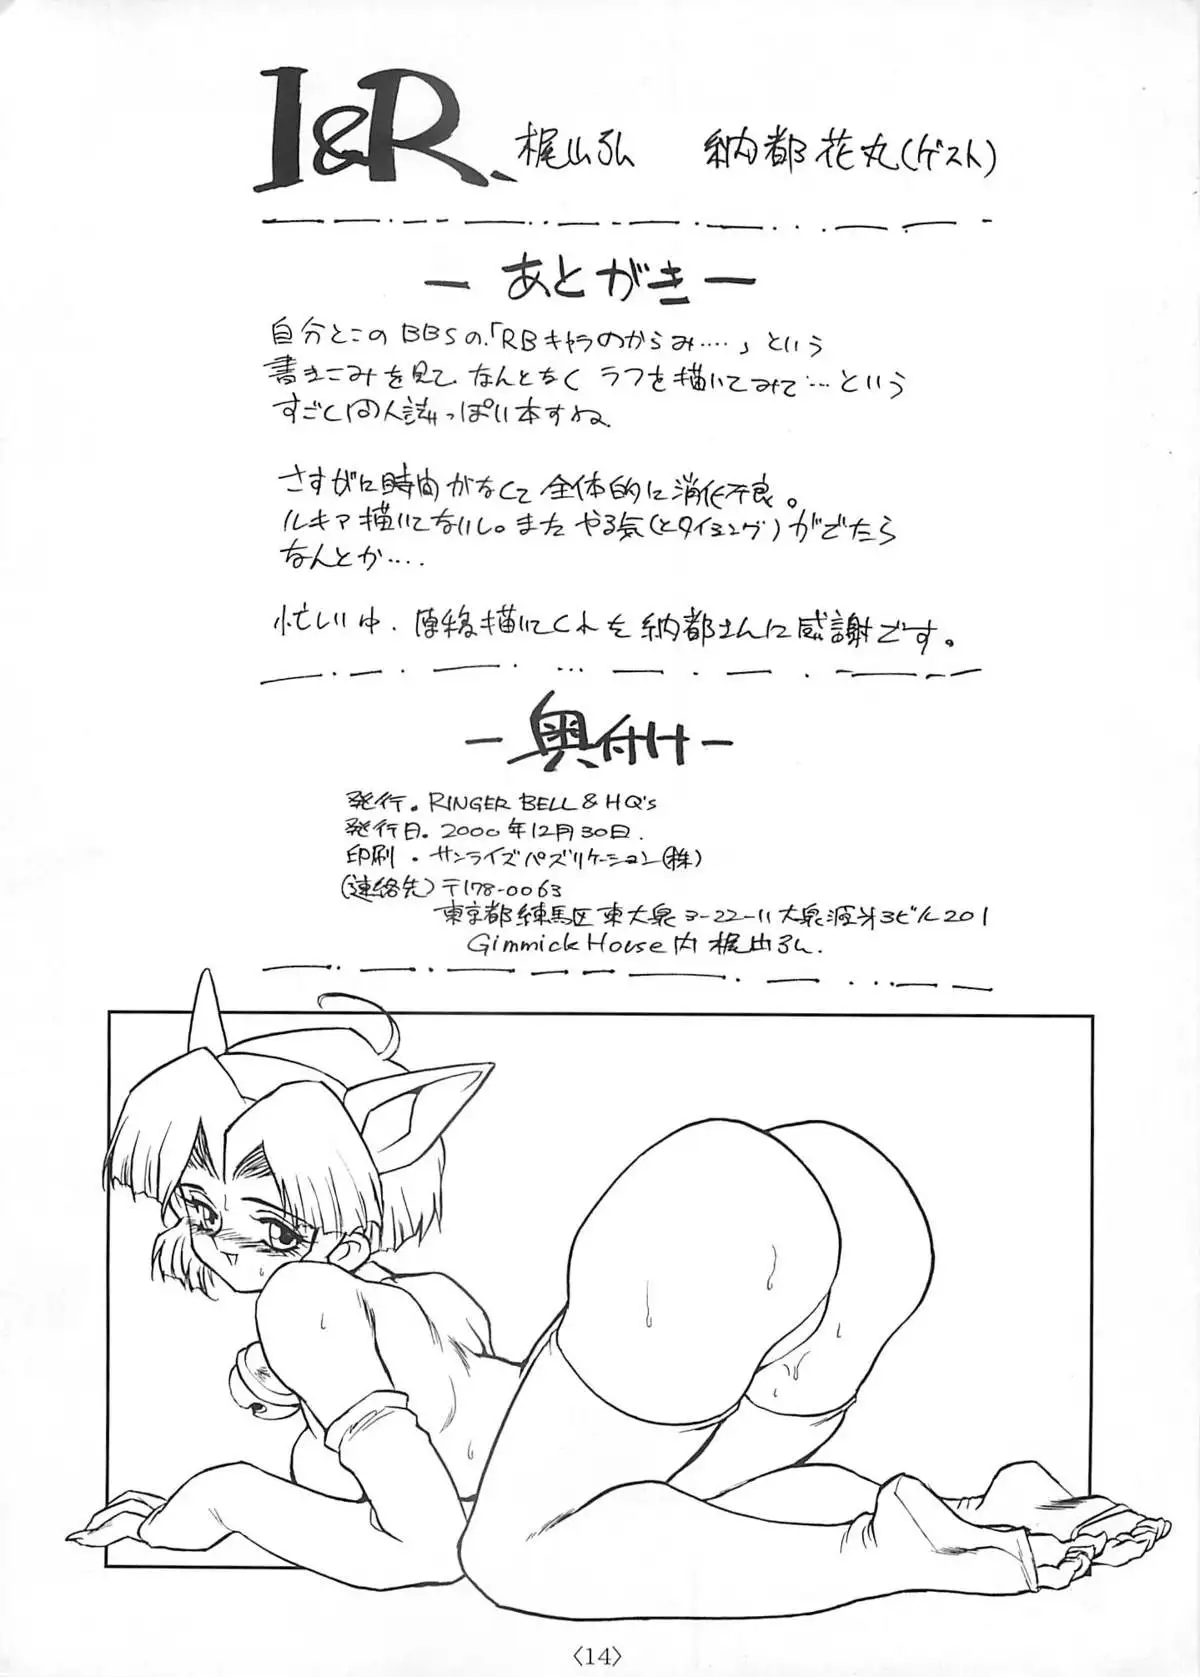 I&R、 梶山弘 納都花丸(ゲスト)
— あとがき —
自分とこのBBSの「RBキャラのからみ‥‥」という
書きこみを見て、なんとなくラフを描いてみて‥‥という
すごく同人誌っぽい本すね。
さすがに時間がなくて全体的に消化不良。
ルキア描いてないし。また やる気(とタイミング)がでたら
なんとか‥‥
忙しい中、原稿描いてくれた納都さんに感謝です。
— 奥付け —
発行。RINGER BELL & HQ's
発行日。2000年12月30日.
印刷・サンライズパブリケーション(株)
(連絡先)〒178-0063
東京都練馬区東大泉3-22-11大泉第3ビル201
Gimmick House内 梶山弘.
〈14〉